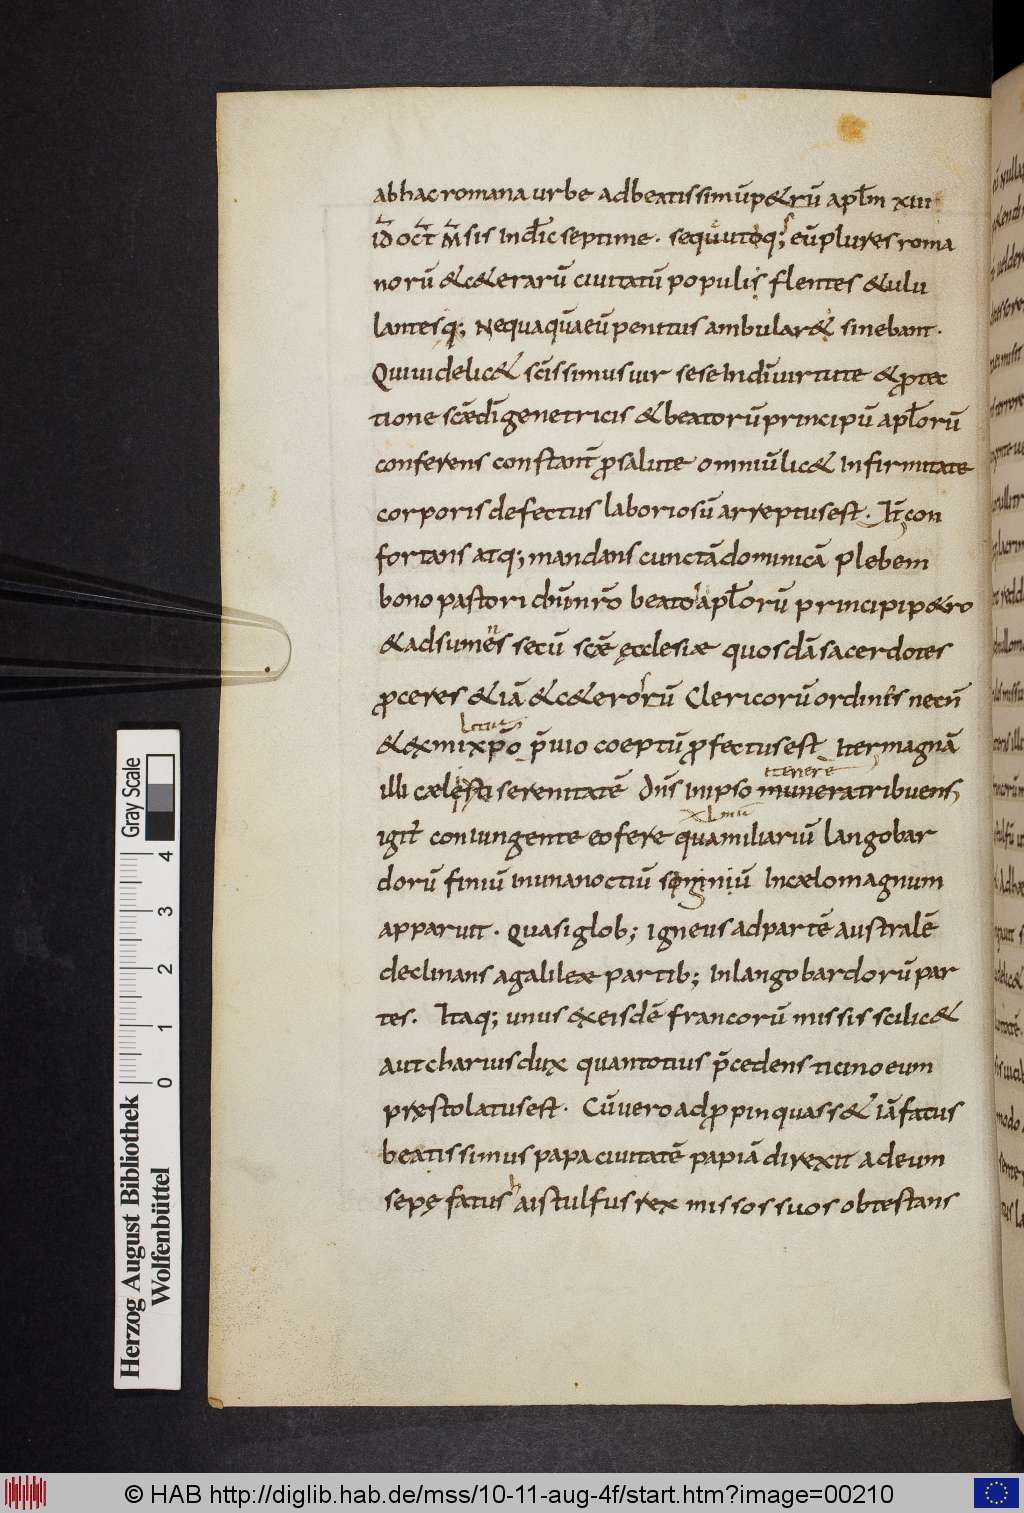 abhacromana urbe adbeatissimūp&rū apłm xiiii
id oct msis indic septime. sequutoq; eūplures roma
norū &c&erarū ciuitatū populis flentes &ulu
lantesq; Nequaquāeū penitus ambular& sinebant.
Quiuidelic& scīssimusuir sese Indī uirtute &ꝓtec
tione scædī genetricis &beatorū principū apłorū
conferens constant ꝓsalute omniū lic& Infirmitate
corporis defectus laboriosū arreptusest. It con
fortans atq; mandans cunctā dominicā Plebem
bono pastori dn̄m nr̄o beato apłorū principi p&ro
&adsumens secū scæ ęcclesiæ quosdā sacerdotes
ꝓceres &iā &c&erorū Clericorū ordinis necn̄
&exmi xp̄o p̄uio coeptū ꝓfectusest Iter magnā
illi cælesti serenitatē dn̄s Inipso itenere tribuens
igit coniungente eo fere quamiliariū langobar
dorū finiū Inunanoctiū signiū Incælomagnum
apparuit. Quasi glob; igneus adpartē australē
declinans agalileæ partib; Inlangobardorū par
tes. Itaq; unus exeisdē francorū missis scilic&
autcharius dux quantotius p̄cedens ticinoeum
pręstolatusest. Cū uero adꝓpinquass& Iā fatus
beatissimus papa ciuitatē papiā direxit adeum
sepę fatus aistulfus rex missos suos obtestans
Herzog August Bibliothek
Wolfenbüttel
Gray Scale
0 1 2 3 4
© HAB http://diglib.hab.de/mss/10-11-aug-4f/start.htm?image=00210